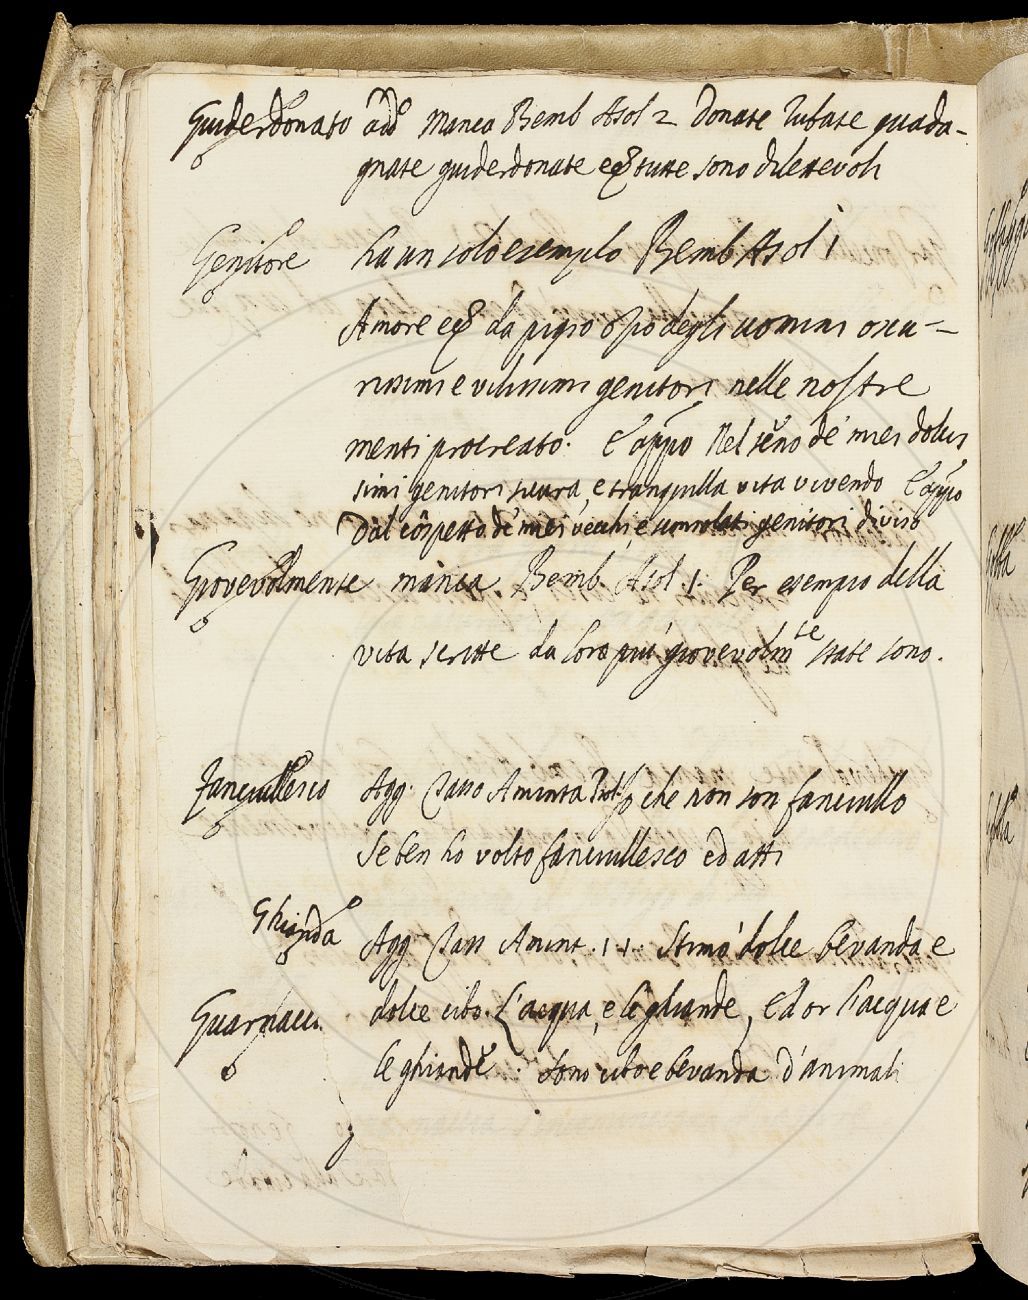 Guiderdonato add manca Bemb Asol 2 Donate rubate guada-
gnate guiderdonate tutte sono dilettevoli
Genitore ha un solo esempio Bemb Asol 1
Amore da pigro degli uomini oscu-
rissimi e vilissimi genitori nelle nostre
menti procreato. E appo Nel seno de' miei dolcis
simi genitori sicura, e tranquilla vita vivendo E appo
Dal cōspetto de' miei vecchi e genitori diviso
Giovevolmente manca. Bemb Asol 1. Per esempio della
vita scritte da loro più giovevolmte state sono.
Fanciullesco Agg. Tasso Aminta Prol. che non son fanciullo
Se ben ho volto fanciullesco ed atti
Ghianda Agg Tass Amint. 1 1. Stimò dolce bevanda e
dolce cibo. L'acqua, e le ghiande, Ed or l'acqua e
Guarnacci
le ghiande. Sono cibo e bevanda d'animali